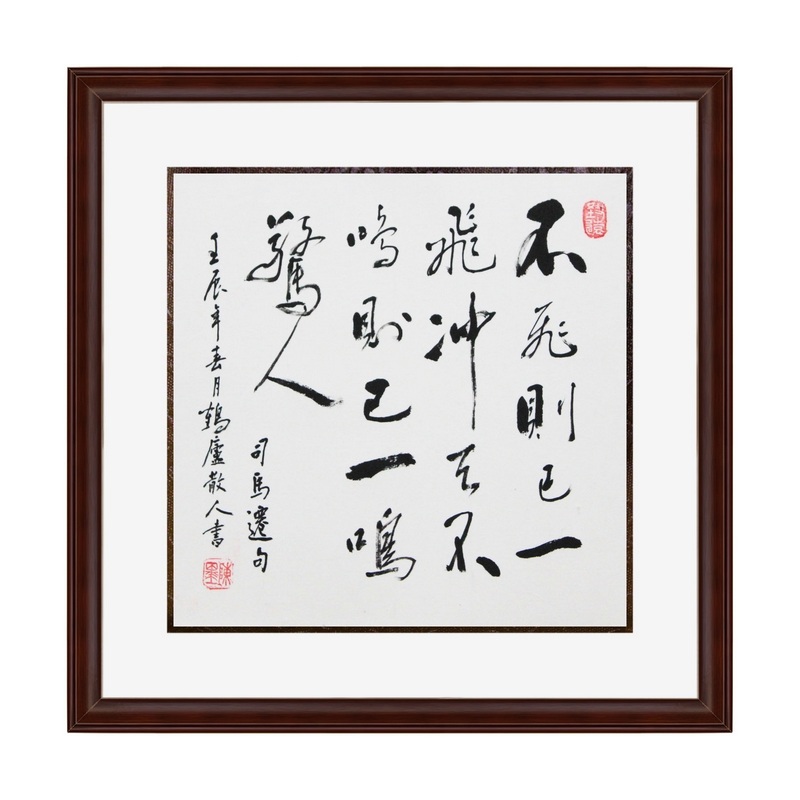 不飛則已一
飛冲天不
鳴則已一鳴
驚人
司馬遷句
壬辰年春月鶴廬散人書
陳墨